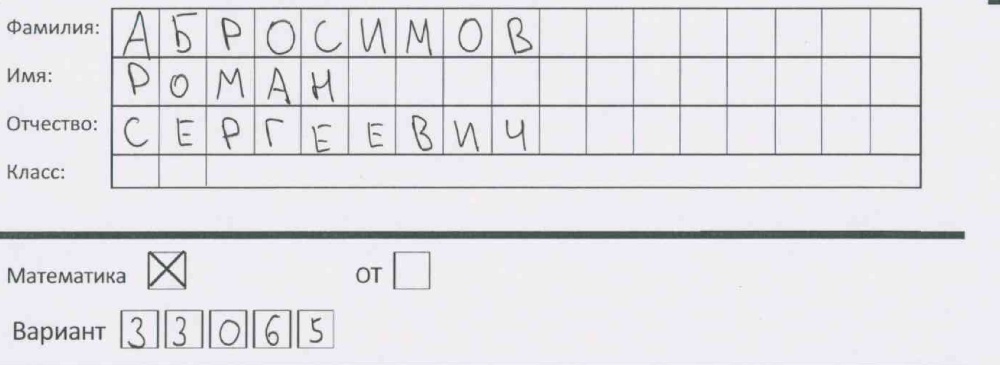 Фамилия: АБРОСИМОВ
Имя: РОМАН
Отчество: СЕРГЕЕВИЧ
Класс:
Математика ☒ ОТ ☐
Вариант 33065